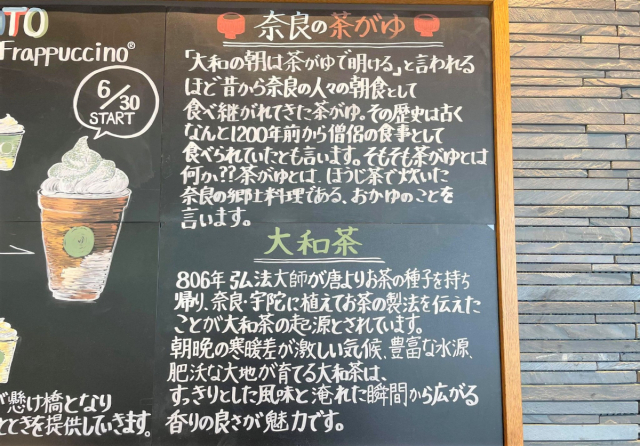 OTO
Frappuccino®
6/30
START
奈良の茶がゆ
「大和の朝は茶がゆで明ける」と言われる
ほど昔から奈良の人々の朝食として
食べ継がれてきた茶がゆ。その歴史は古く
なんと1200年前から僧侶の食事として
食べられていたとも言います。そもそも茶がゆとは
何か??茶がゆとは、ほうじ茶で炊いた
奈良の郷土料理である、おかゆのことを
言います。
大和茶
806年 弘法大師が唐よりお茶の種子を持ち
帰り、奈良・宇陀に植えてお茶の製法を伝えた
ことが大和茶の起源とされています。
朝晩の寒暖差が激しい気候、豊富な水源、
肥沃な大地が育てる大和茶は、
すっきりとした風味と淹れた瞬間から広がる
香りの良さが魅力です。
が懸け橋となり
ひとときを提供していきます。